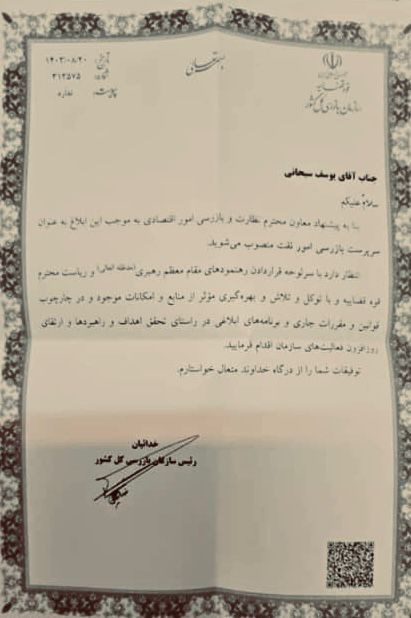 بسمه تعالی
جمهوری اسلامی ایران
قوه قضاییه
سازمان بازرسی کل کشور
تاریخ: ۱۴۰۳/۰۸/۲۰
شماره: ۳۱۲۵۷۵
پیوست: ندارد
جناب آقای یوسف سبحانی
سلامٌ علیکم
بنا به پیشنهاد معاون محترم نظارت و بازرسی امور اقتصادی به موجب این ابلاغ به عنوان
سرپرست بازرسی امور نفت منصوب می‌شوید.
انتظار دارد با سرلوحه قراردادن رهنمودهای مقام معظم رهبری (مدظله العالی) و ریاست محترم
قوه قضاییه و با توکل و تلاش و بهره‌گیری مؤثر از منابع و امکانات موجود و در چارچوب
قوانین و مقررات جاری و برنامه‌های ابلاغی در راستای تحقق اهداف و راهبردها و ارتقای
روزافزون فعالیت‌های سازمان اقدام فرمایید.
توفیقات شما را از درگاه خداوند متعال خواستارم.
خدائیان
رئیس سازمان بازرسی کل کشور